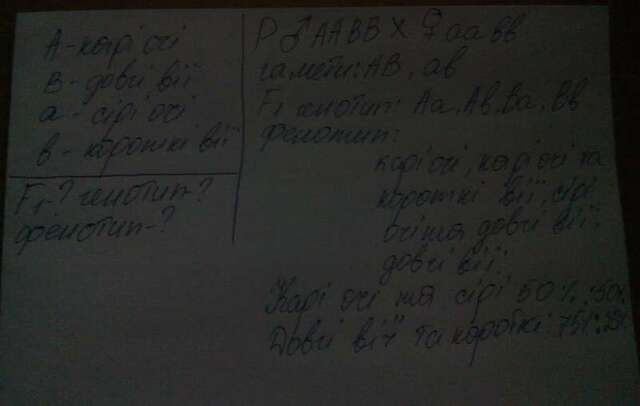 А - карі очі
В - довгі вії
а - сірі очі
в - короткі вії
F₁ - ? генотип - ?
фенотип - ?
Р ♂ ААВВ × ♀ аавв
гамети: АВ, ав
F₁ генотип: Аа, Ав, Ва, Вв
фенотип:
карі очі, карі очі та
короткі вії, сірі
очі та довгі вії,
довгі вії.
Карі очі та сірі 50% : 50%
Довгі вії та короткі: 75% : 25%